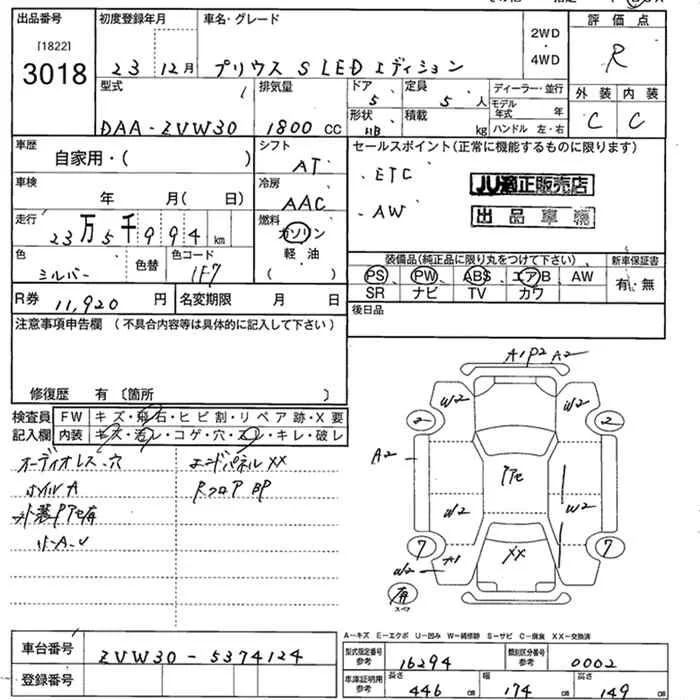 出品番号
[1822]
3018
初度登録年月
23 12月
車名・グレード
プリウス S LED エディション
2WD
・
4WD
評価点
R
外装 内装
C C
型式
DAA-ZVW30
排気量
1800 CC
ドア
5
形状
HB
定員
5 人
積載
kg
ディーラー・並行
モデル年式 年
ハンドル 左・右
車歴
自家用・( )
シフト
AT
車検
年 月( 日)
冷房
AAC
走行
23万5千994 km
燃料
ガソリン
軽油
( )
色
シルバー
色替
色コード
1F7
R券 11,920 円
名変期限 月 日
セールスポイント(正常に機能するものに限ります)
・ETC
・AW
JU適正販売店
出品車輌
装備品(純正品に限り丸をつけて下さい)
PS PW ABS エアB AW
SR ナビ TV カワ
新車保証書
有・無
後日品
注意事項申告欄 (不具合内容等は具体的に記入して下さい)
修復歴 有 〔箇所 〕
検査員記入欄
FW キズ・飛石・ヒビ割・リペア跡・X要
内装 キズ・汚レ・コゲ・穴・スレ・キレ・破レ
オーディオレス・穴
ホイルA
エンドパネルXX
RフロアBP
A1P2 A2
W2 W2
2 2
A2
W2 W2
7 7
W2 A1
XX
有
スペア
A-キズ E-エクボ U-凹み W-補修跡 S-サビ C-腐食 XX-交換済
車台番号 ZVW30-5374124
登録番号
型式指定番号 参考 16294
類別区分番号 参考 0002
車庫証明用 参考
長さ 446 cm
幅 174 cm
高さ 149 cm